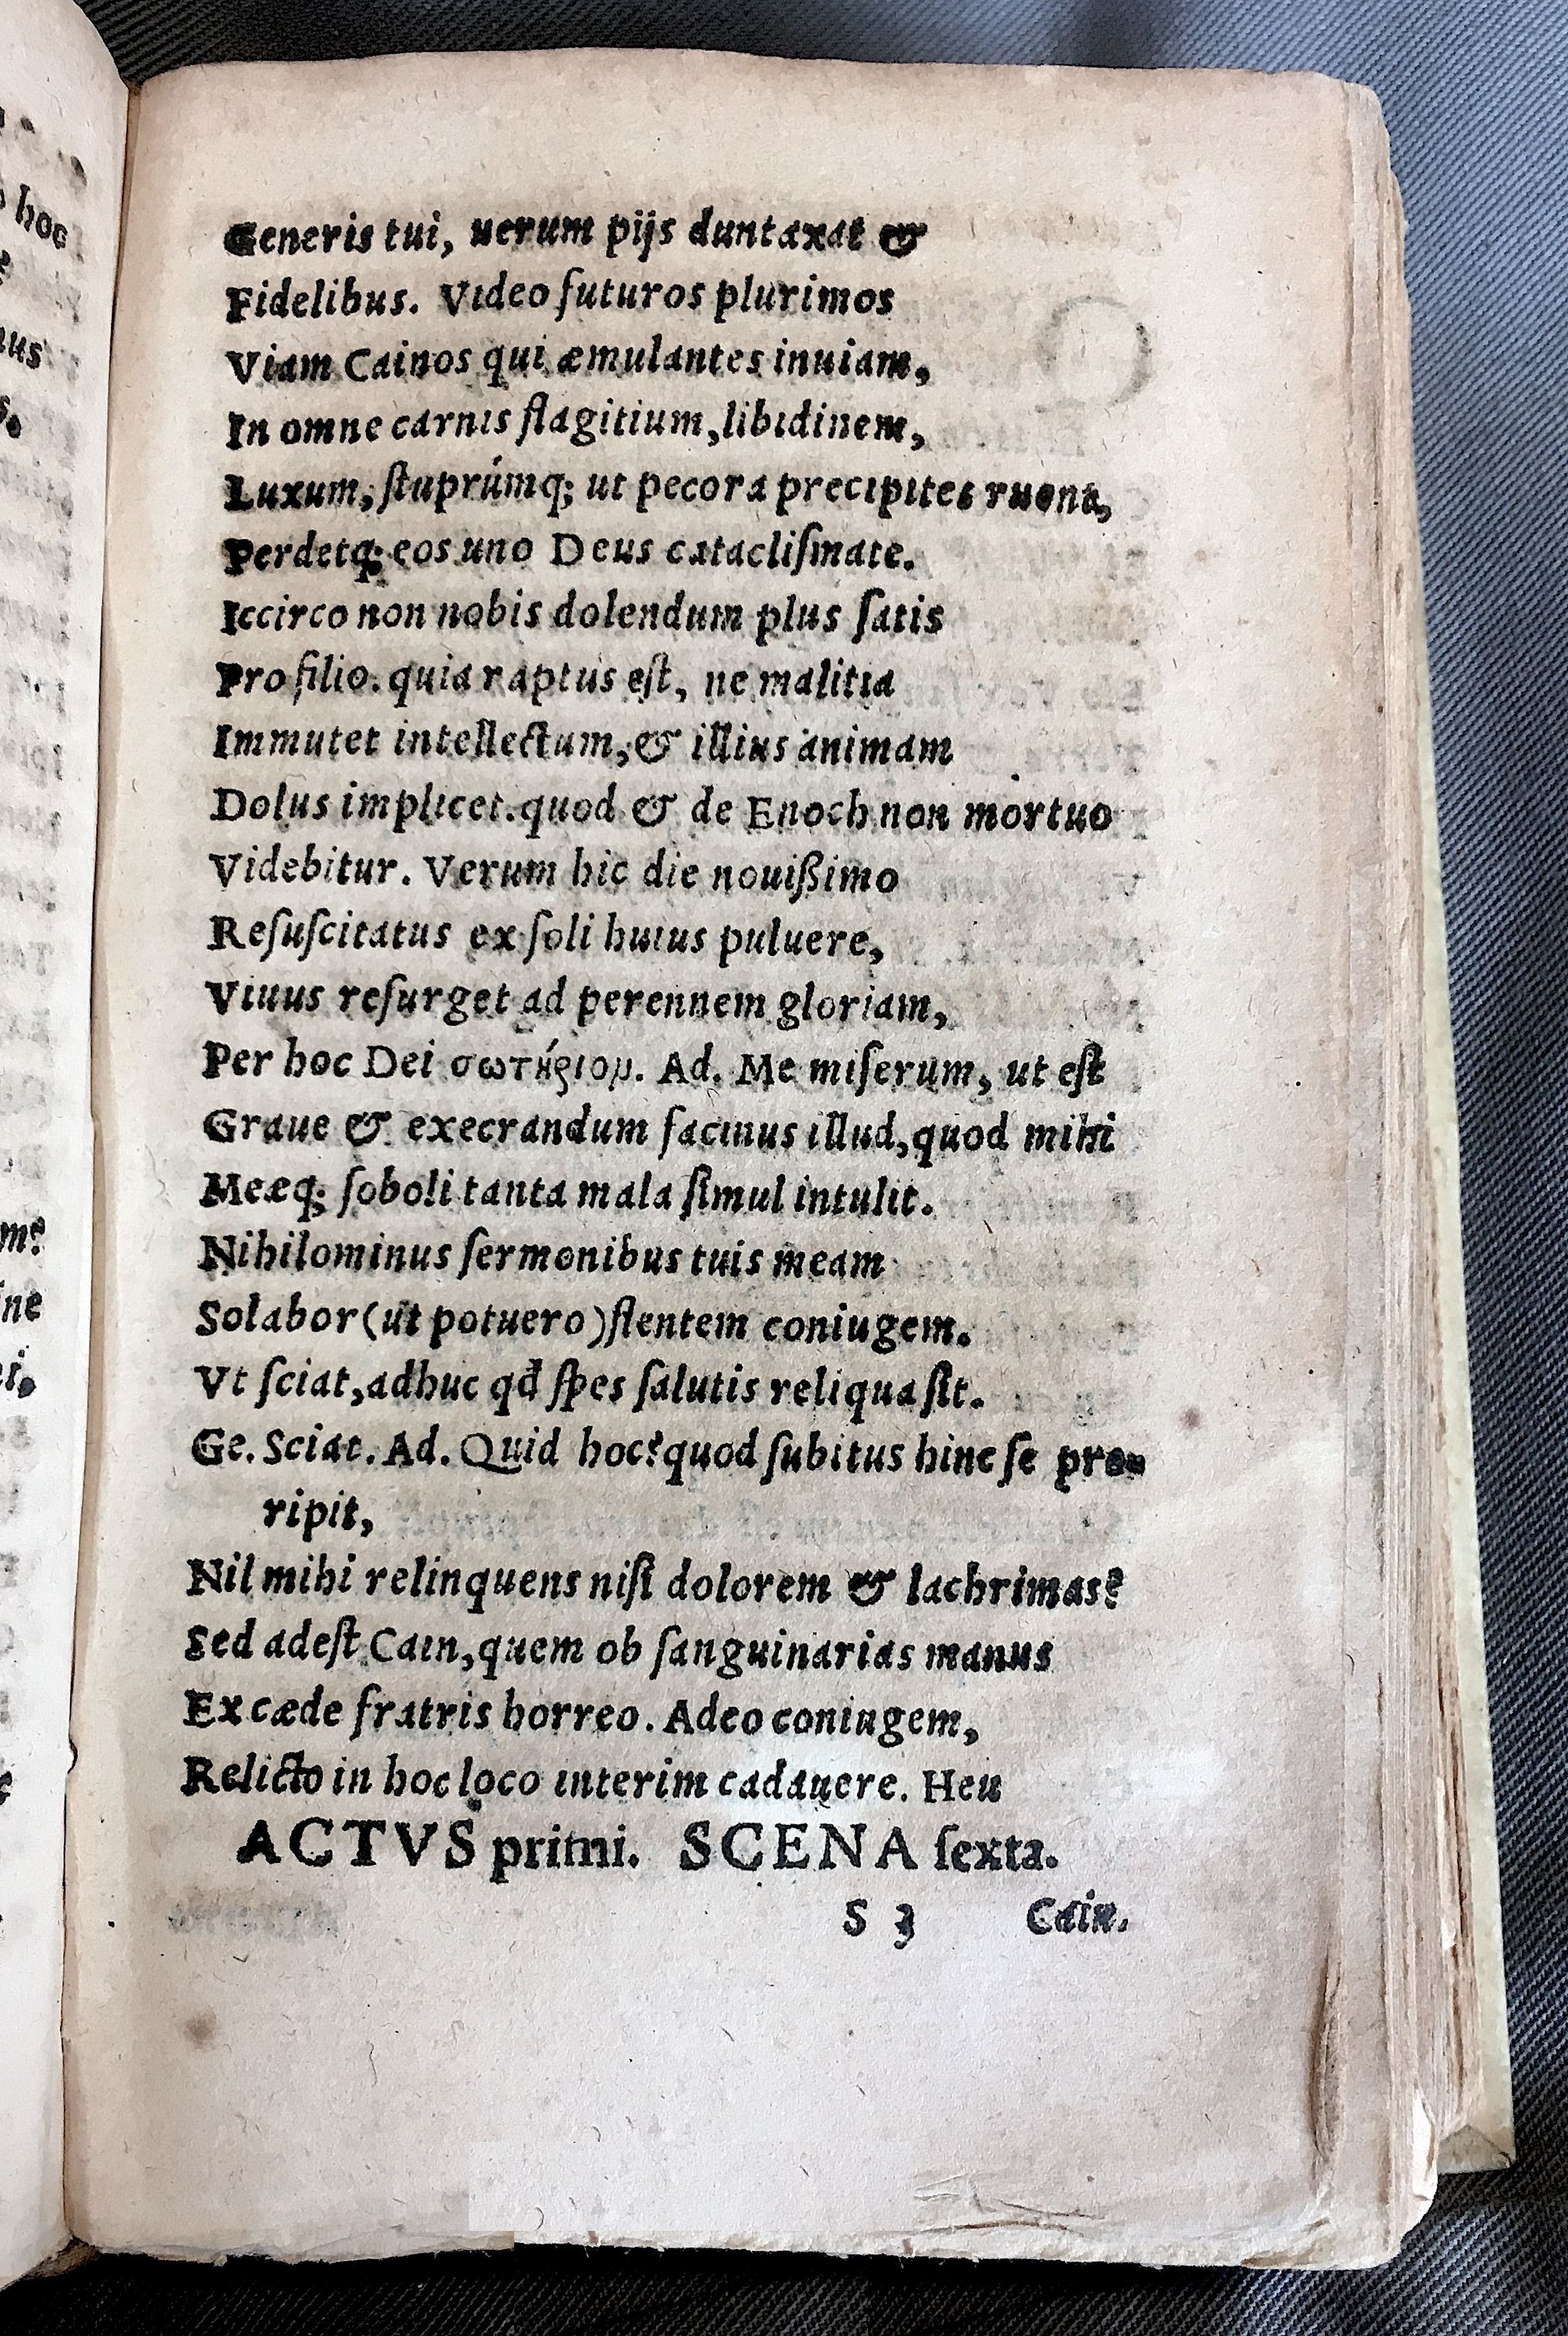 hoc
us
s.
me?
ne
i.
Generis tui, uerum pijs duntaxat &
Fidelibus. Video futuros plurimos
Viam Cainos qui æmulantes inuiam,
In omne carnis flagitium, libidinem,
Luxum, ſtuprúmq; ut pecora precipites ruent,
Perdetq; eos uno Deus catacliſmate.
Iccirco non nobis dolendum plus ſatis
Pro filio. quia raptus eſt, ne malitia
Immutet intellectum, & illius animam
Dolus implicet. quod & de Enoch non mortuo
Videbitur. Verum hic die nouißimo
Reſuſcitatus ex ſoli huius puluere,
Viuus reſurget ad perennem gloriam,
Per hoc Dei σωτήριομ. Ad. Me miſerum, ut eſt
Graue & execrandum facinus illud, quod mihi
Meæq; ſoboli tanta mala ſimul intulit.
Nihilominus ſermonibus tuis meam
Solabor (ut potuero) flentem coniugem.
Vt ſciat, adhuc qđ ſpes ſalutis reliqua ſit.
Ge. Sciat. Ad. Quid hoc? quod ſubitus hinc ſe præ-
ripit,
Nil mihi relinquens niſi dolorem & lachrimas?
Sed adeſt Cain, quem ob ſanguinarias manus
Ex cæde fratris horreo. Adeo coniugem,
Relicto in hoc loco interim cadauere. Heu
ACTVS primi. SCENA ſexta.
S 3 Cain.